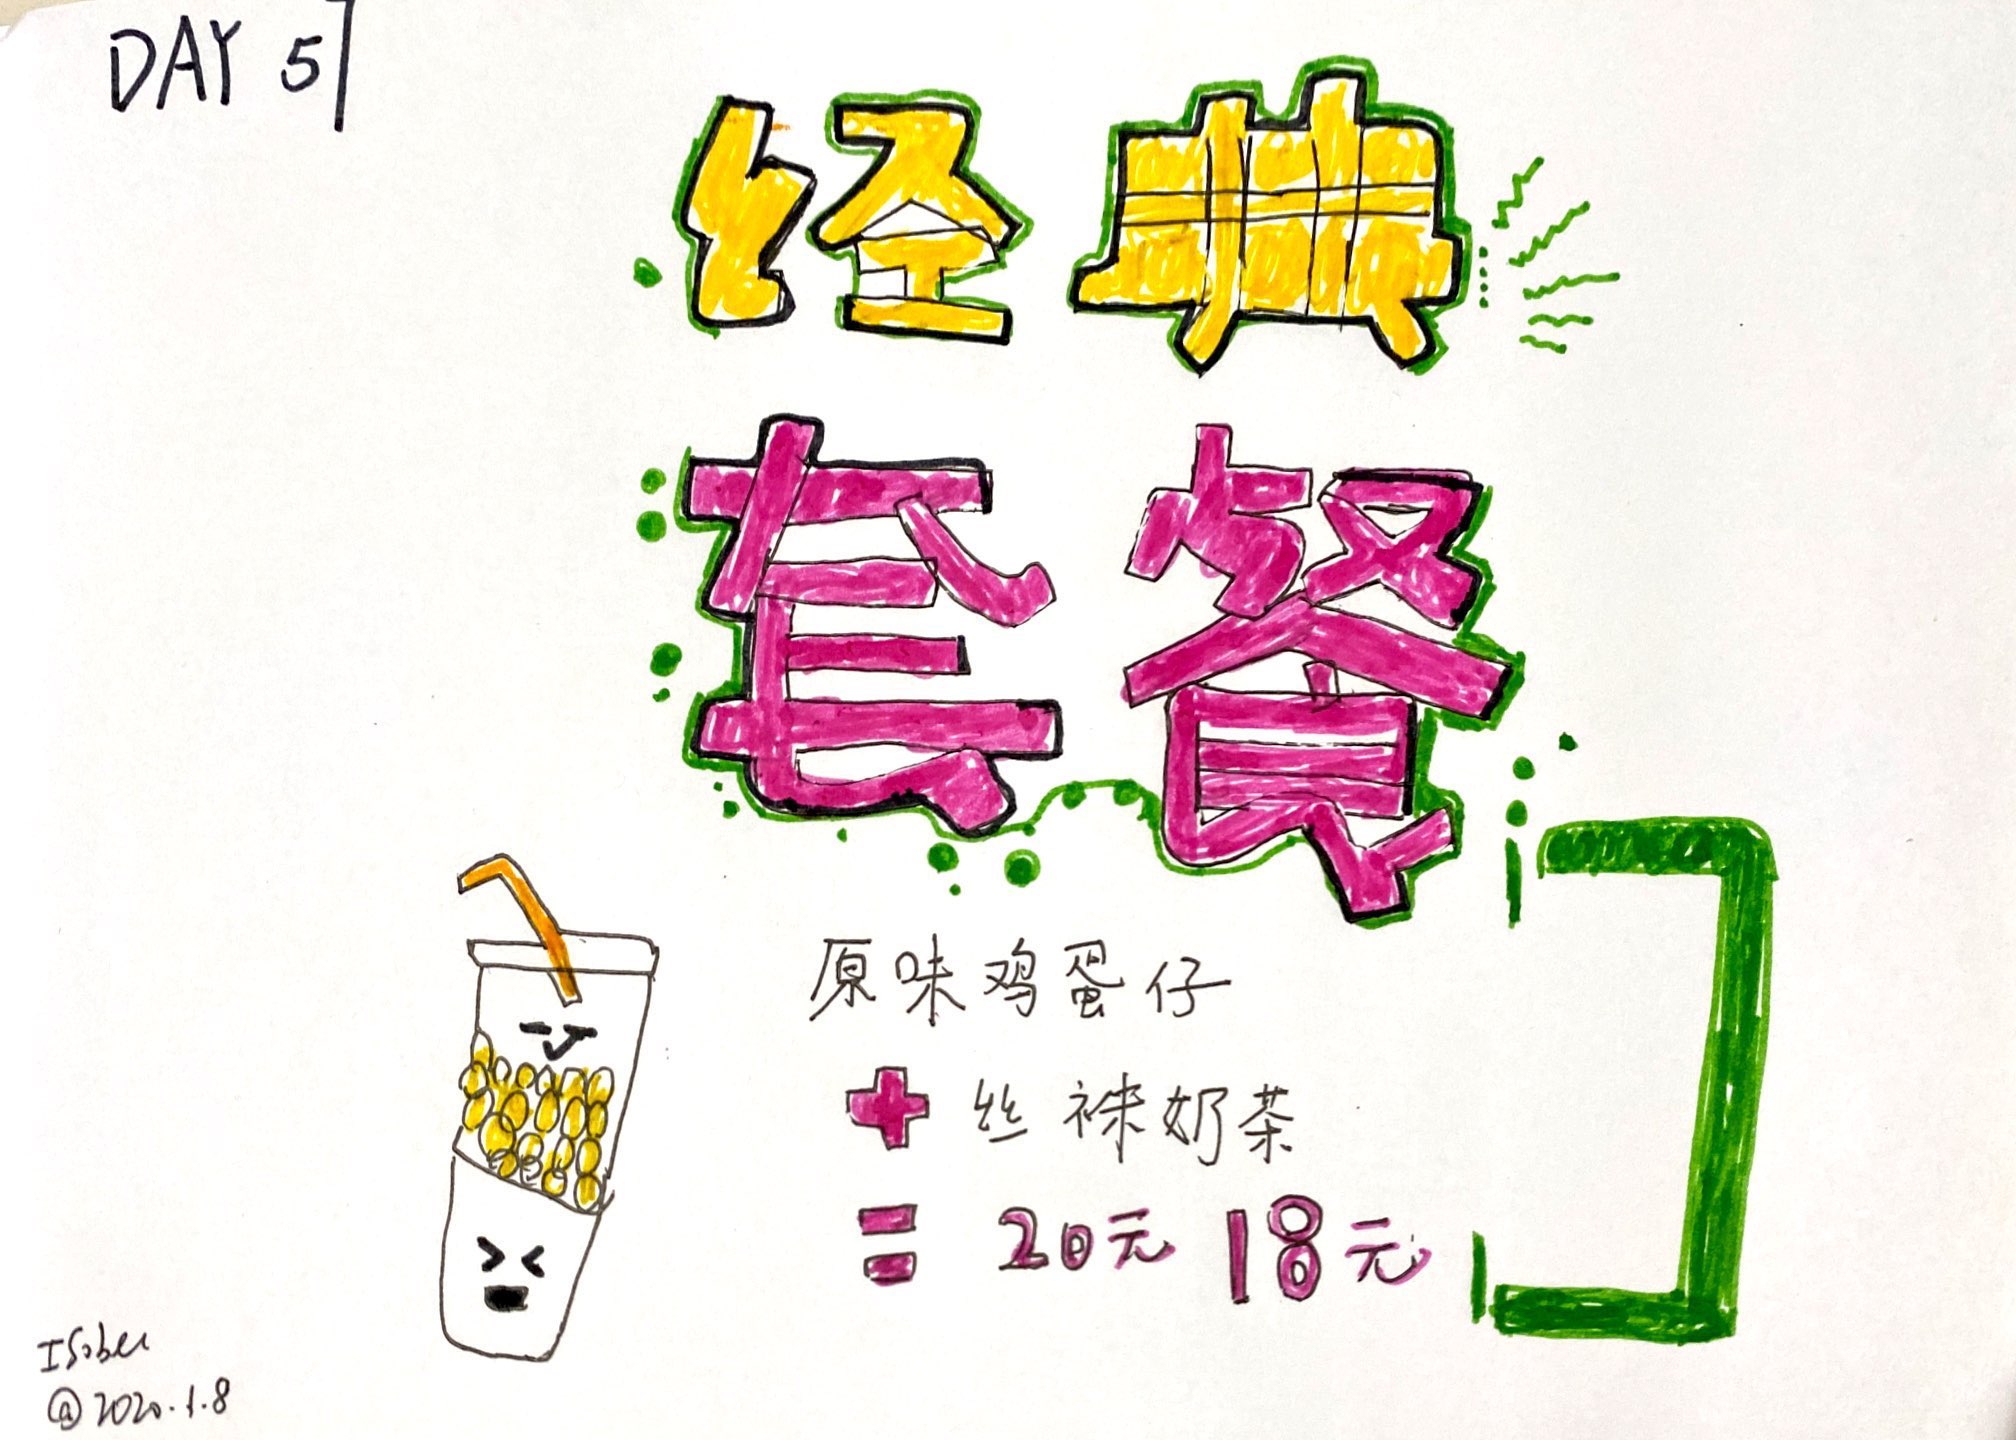 DAY 5
经典
套餐
原味鸡蛋仔
+ 丝袜奶茶
= 20元 18元
Isobel
@2020.1.8